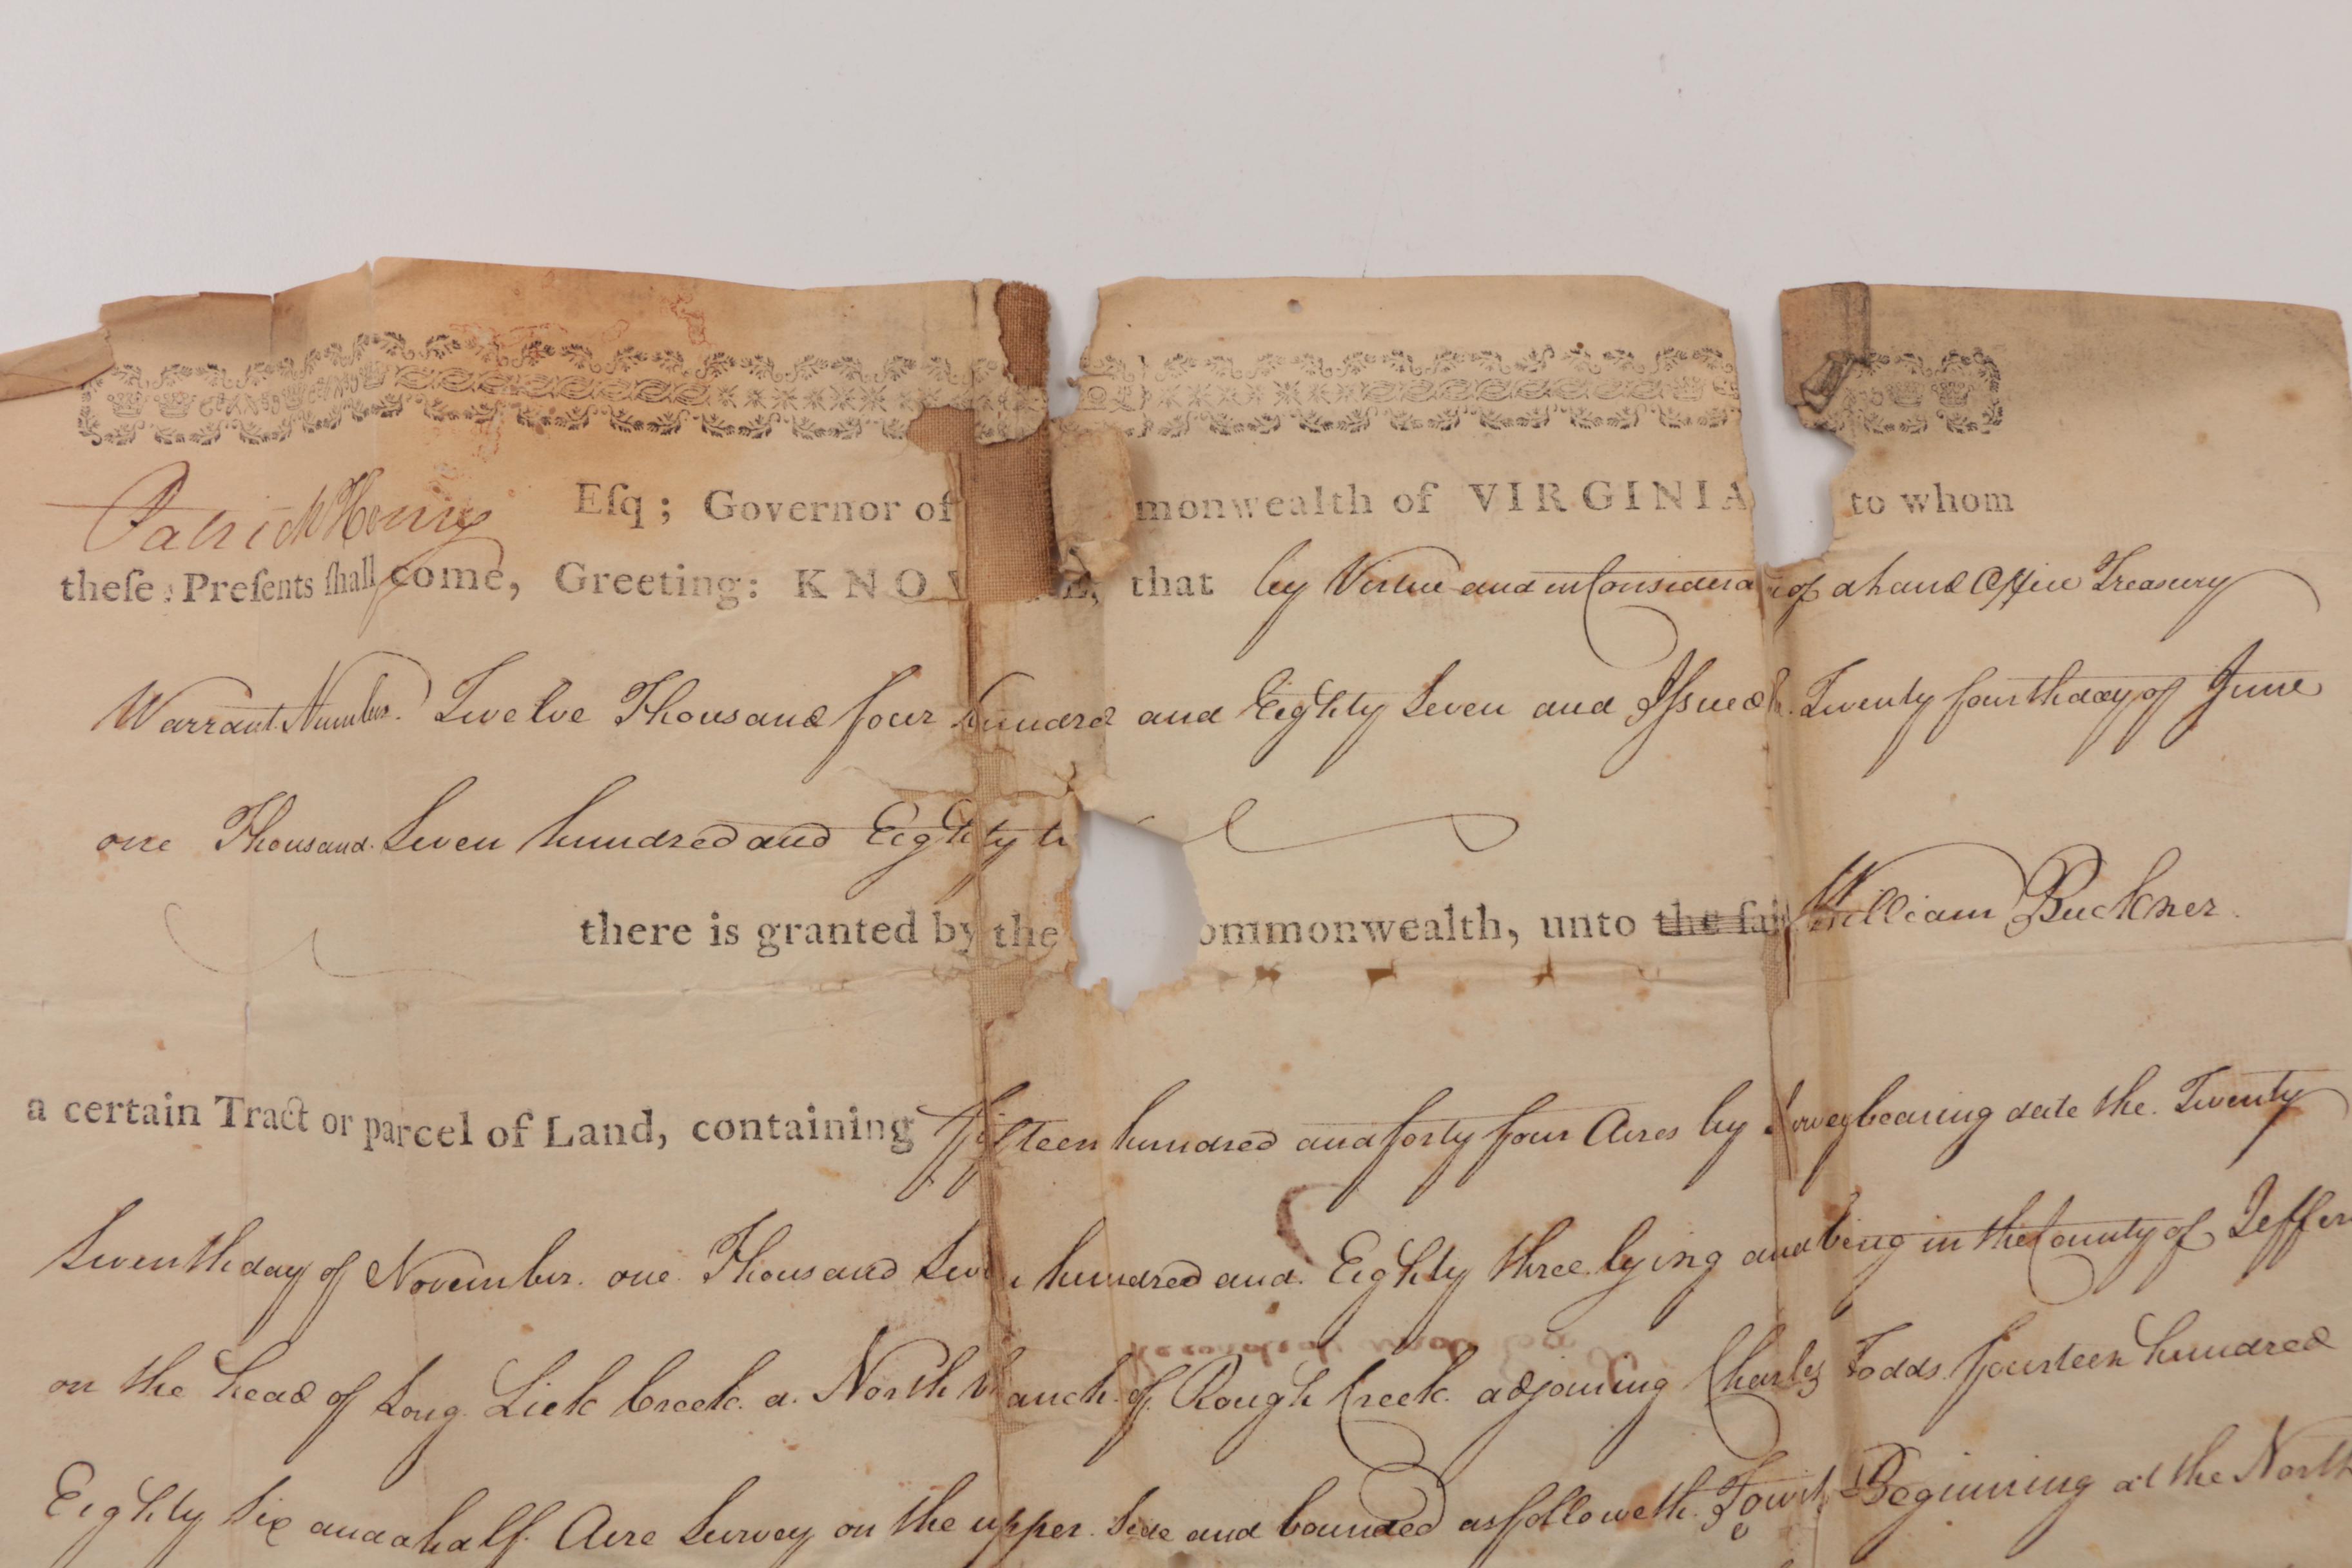 Patrick Henry Eſq; Governor of monwealth of VIRGINIA to whom
theſe Preſents ſhall come, Greeting: KNO that by Virtue and in Considera of a Land Office Treasury
Warrant Number Twelve Thousand four hundred and Eighty Seven and Issued Twenty fourth day of June
one Thousand Seven hundred and Eighty
there is granted by the ommonwealth, unto the ſai William Buckner.
a certain Tract or parcel of Land, containing Fifteen hundred and forty four Acres by Survey bearing date the Twenty
Seventh day of November one Thousand Seven hundred and Eighty three lying and being in the County of Jeffer
on the head of Long Lick Creek a North branch of Rough Creek adjoining Charles Todds fourteen hundred
Eighty Six and a half Acre Survey on the upper Side and bounded as followeth Towit Beginning at the North